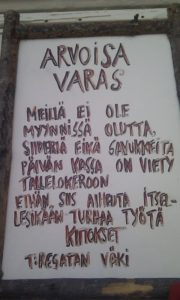 ARVOISA
VARAS
MEILLÄ EI OLE
MYYNNISSÄ OLUTTA,
SIIDERIÄ EIKÄ SAVUKKEITA
PÄIVÄN KASSA ON VIETY
TALLELOKEROON
ETHÄN SIIS AIHEUTA ITSEL-
LESIKÄÄN TURHAA TYÖTÄ
KIITOKSET
T: REGATAN VÄKI